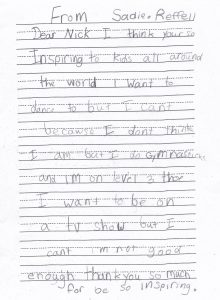 From Sadie. Reffell
Dear Nick I think your so
Inspiring to kids all around
the world I want to
dance to but I cant
because I dont think
I am but I do Gymnastics
and I'm on level 3 thor
I want to be on
a tv show but I
cant I'm not good
enough thank you so much
for be so inspiring.